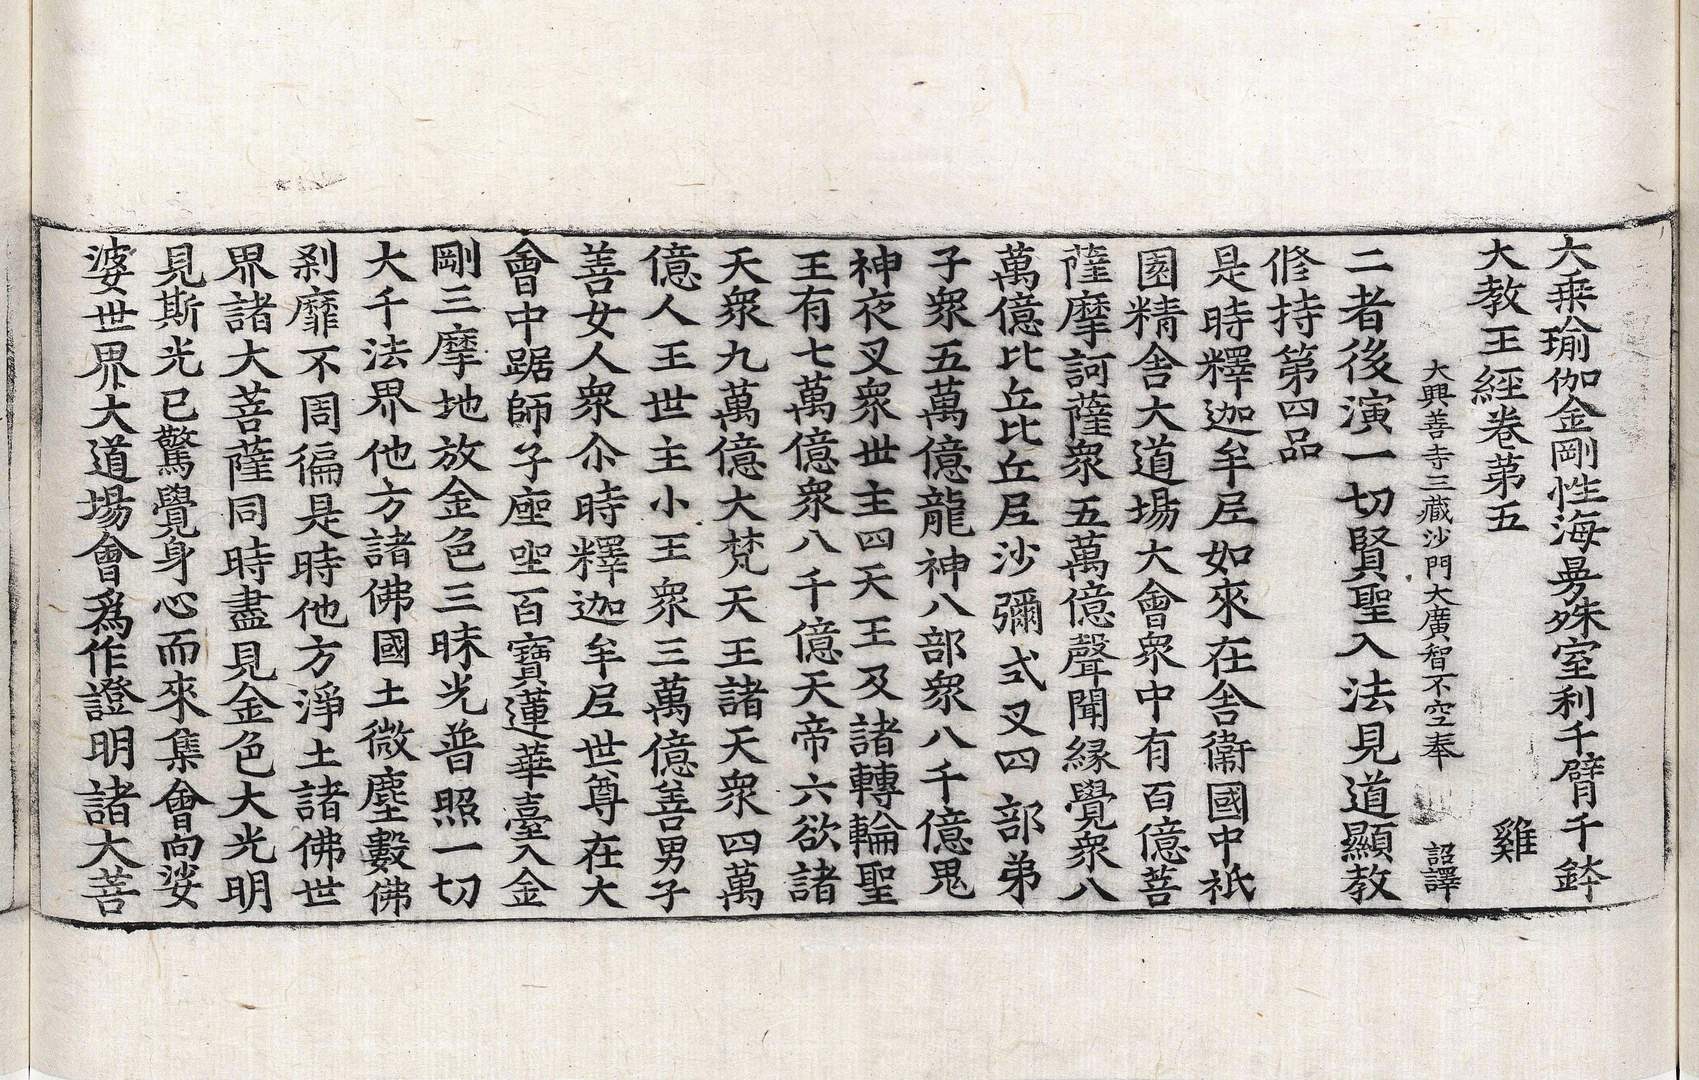 大乘瑜伽金剛性海曼殊室利千臂千鉢
大教王經卷第五 雞
大興善寺三藏沙門大廣智不空奉 詔譯
二者後演一切賢聖入法見道顯教
修持第四品
是時釋迦牟尼如來在舍衞國中祇
園精舍大道場大會衆中有百億菩
薩摩訶薩衆五萬億聲聞緣覺衆八
萬億比丘比丘尼沙彌式叉四部弟
子衆五萬億龍神八部衆八千億鬼
神夜叉衆世主四天王及諸轉輪聖
王有七萬億衆八千億天帝六欲諸
天衆九萬億大梵天王諸天衆四萬
億人王世主小王衆三萬億善男子
善女人衆尒時釋迦牟尼世尊在大
會中踞師子座坐百寶蓮華臺入金
剛三摩地放金色三昧光普照一切
大千法界他方諸佛國土微塵數佛
刹靡不周徧是時他方淨土諸佛世
界諸大菩薩同時盡見金色大光明
見斯光已驚覺身心而來集會向娑
婆世界大道場會爲作證明諸大菩